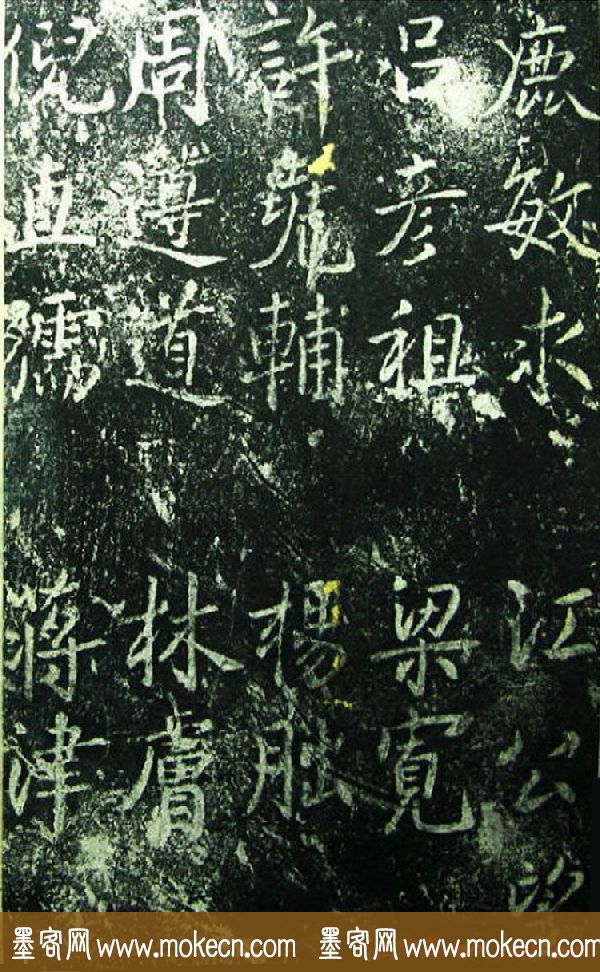 鹿敏求 江公
呂彥祖 梁寬
許堯輔 楊朏
周遵道 林膚
倪直孺 蔣津
墨客网 www.mokecn.com 墨客网 www.mokecn.com